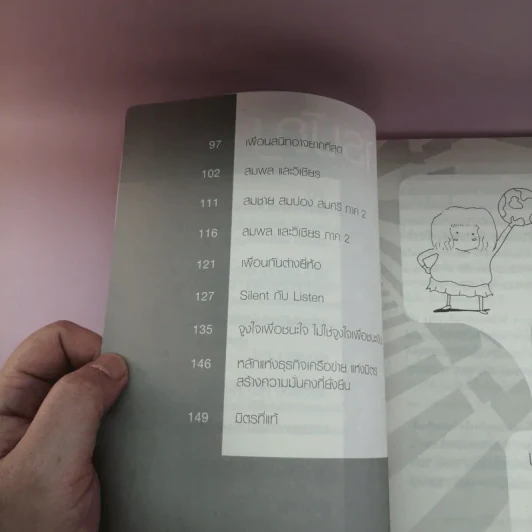 97 เพื่อนสนิทอาจยากที่สุด
102 สมพล และวิเชียร
111 สมชาย สมปอง สมศรี ภาค 2
116 สมพล และวิเชียร ภาค 2
121 เพื่อนกันต่างยี่ห้อ
127 Silent กับ Listen
135 จูงใจเพื่อชนะใจ ไม่ใช่จูงใจเพื่อชนะ
146 หลักแห่งธุรกิจเครือข่าย แห่งมิตร
สร้างความมั่นคงที่ยั่งยืน
149 มิตรที่แท้